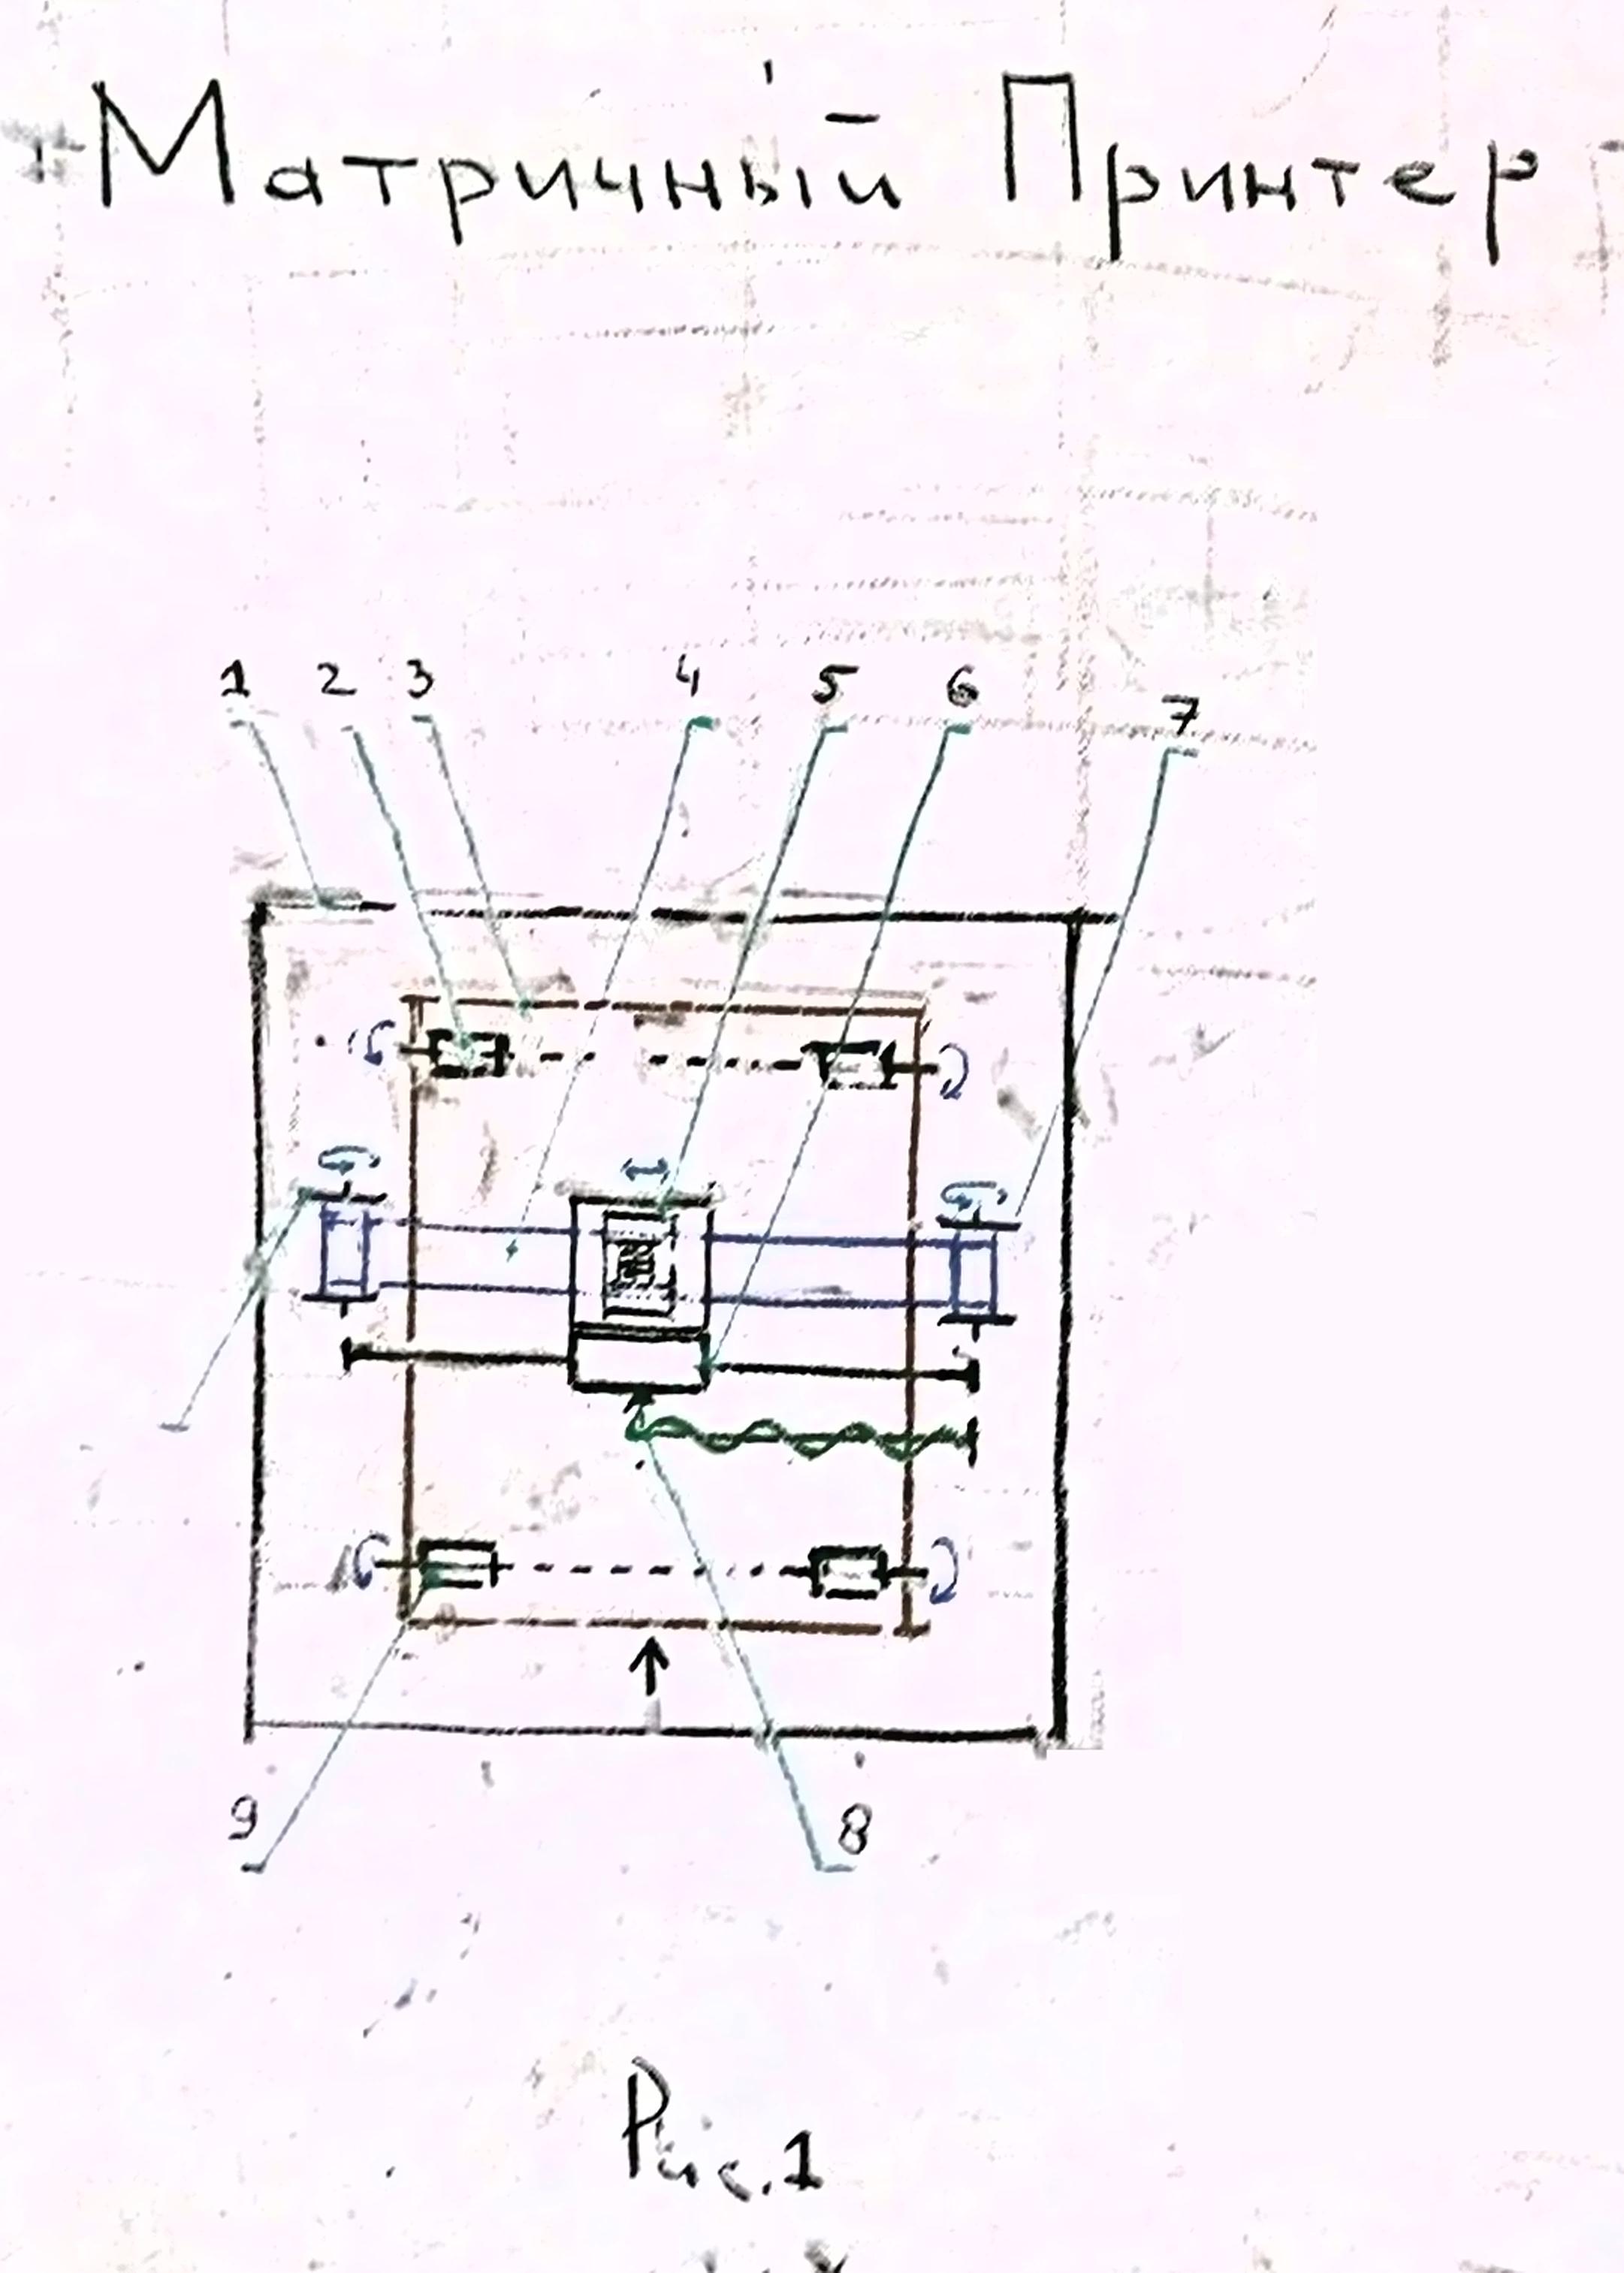 Матричный Принтер
1 2 3 4 5 6 7
9 8
Рис.1